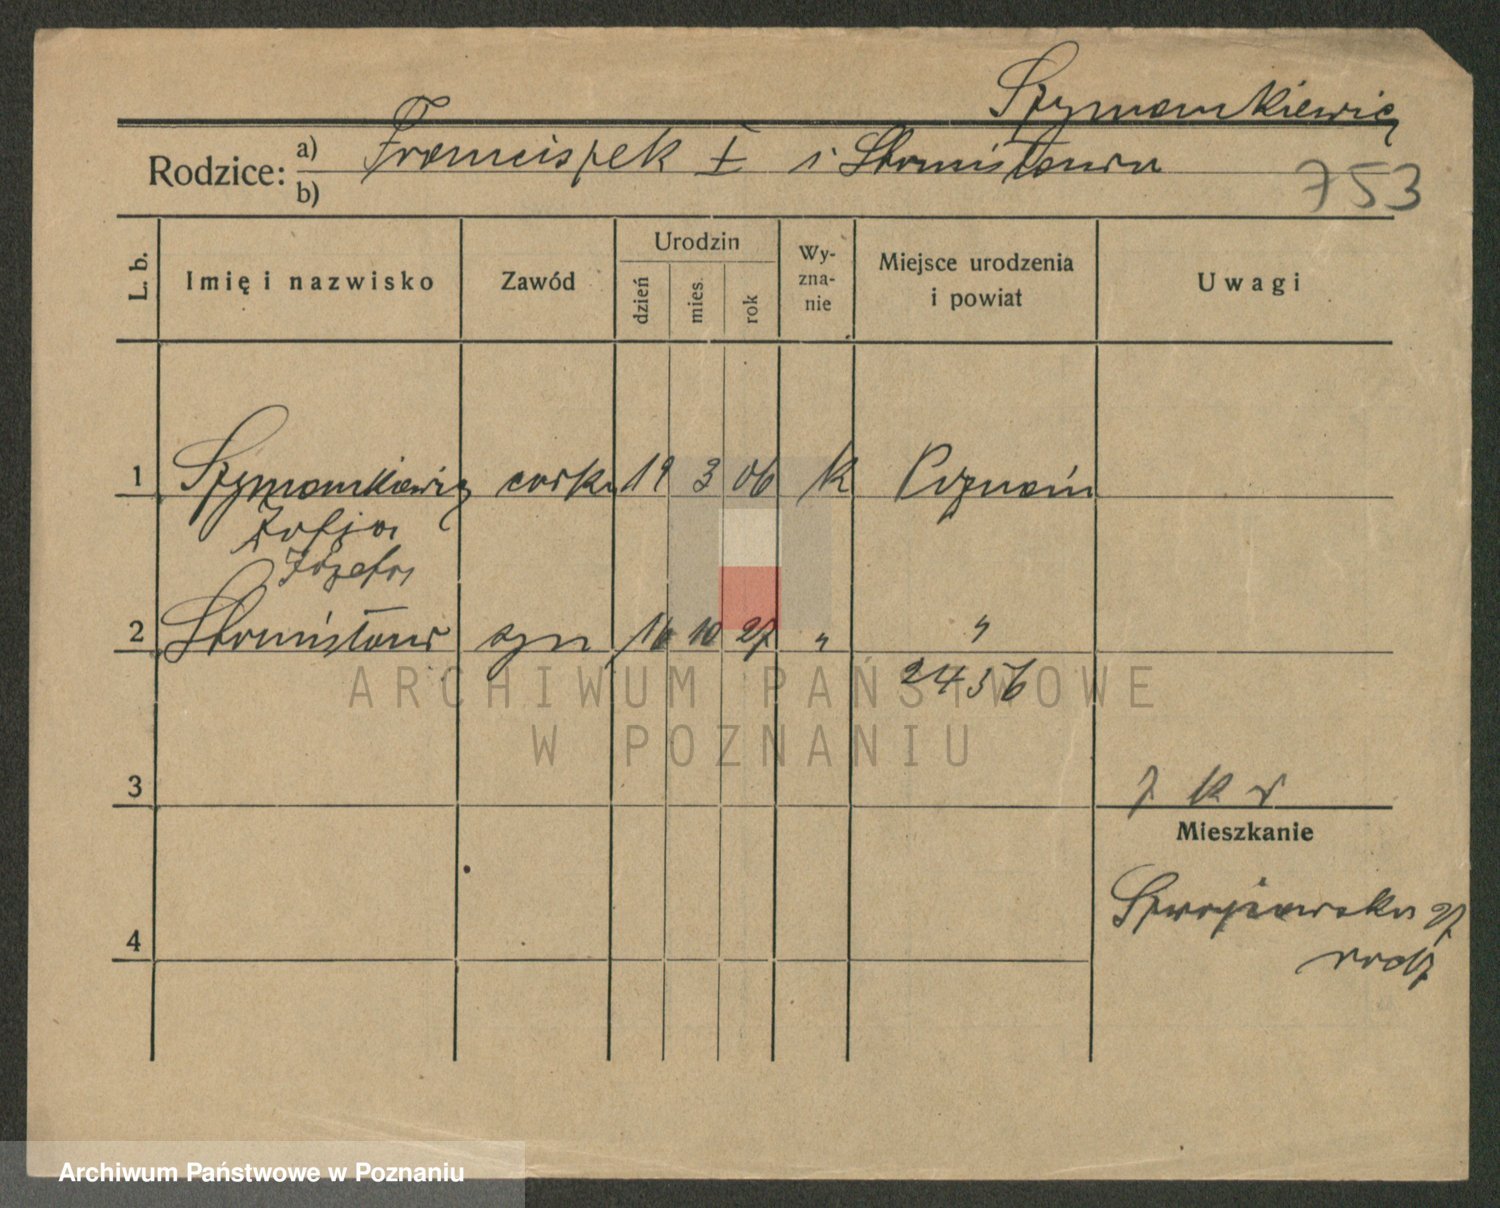 Szymankiewicz
Rodzice: a) Franciszek I i Stanisława
b)
753
L. b.
Imię i nazwisko
Zawód
Urodzin
dzień
mies.
rok
Wy-
zna-
nie
Miejsce urodzenia
i powiat
Uwagi
1 Szymankiewicz corka 19 3 06 k Poznań
Zofja
Józefa
2 Stanisław syn 16 10 27 " "
2456
ARCHIWUM PAŃSTWOWE
W POZNANIU
3
Mieszkanie
4
27
Archiwum Państwowe w Poznaniu